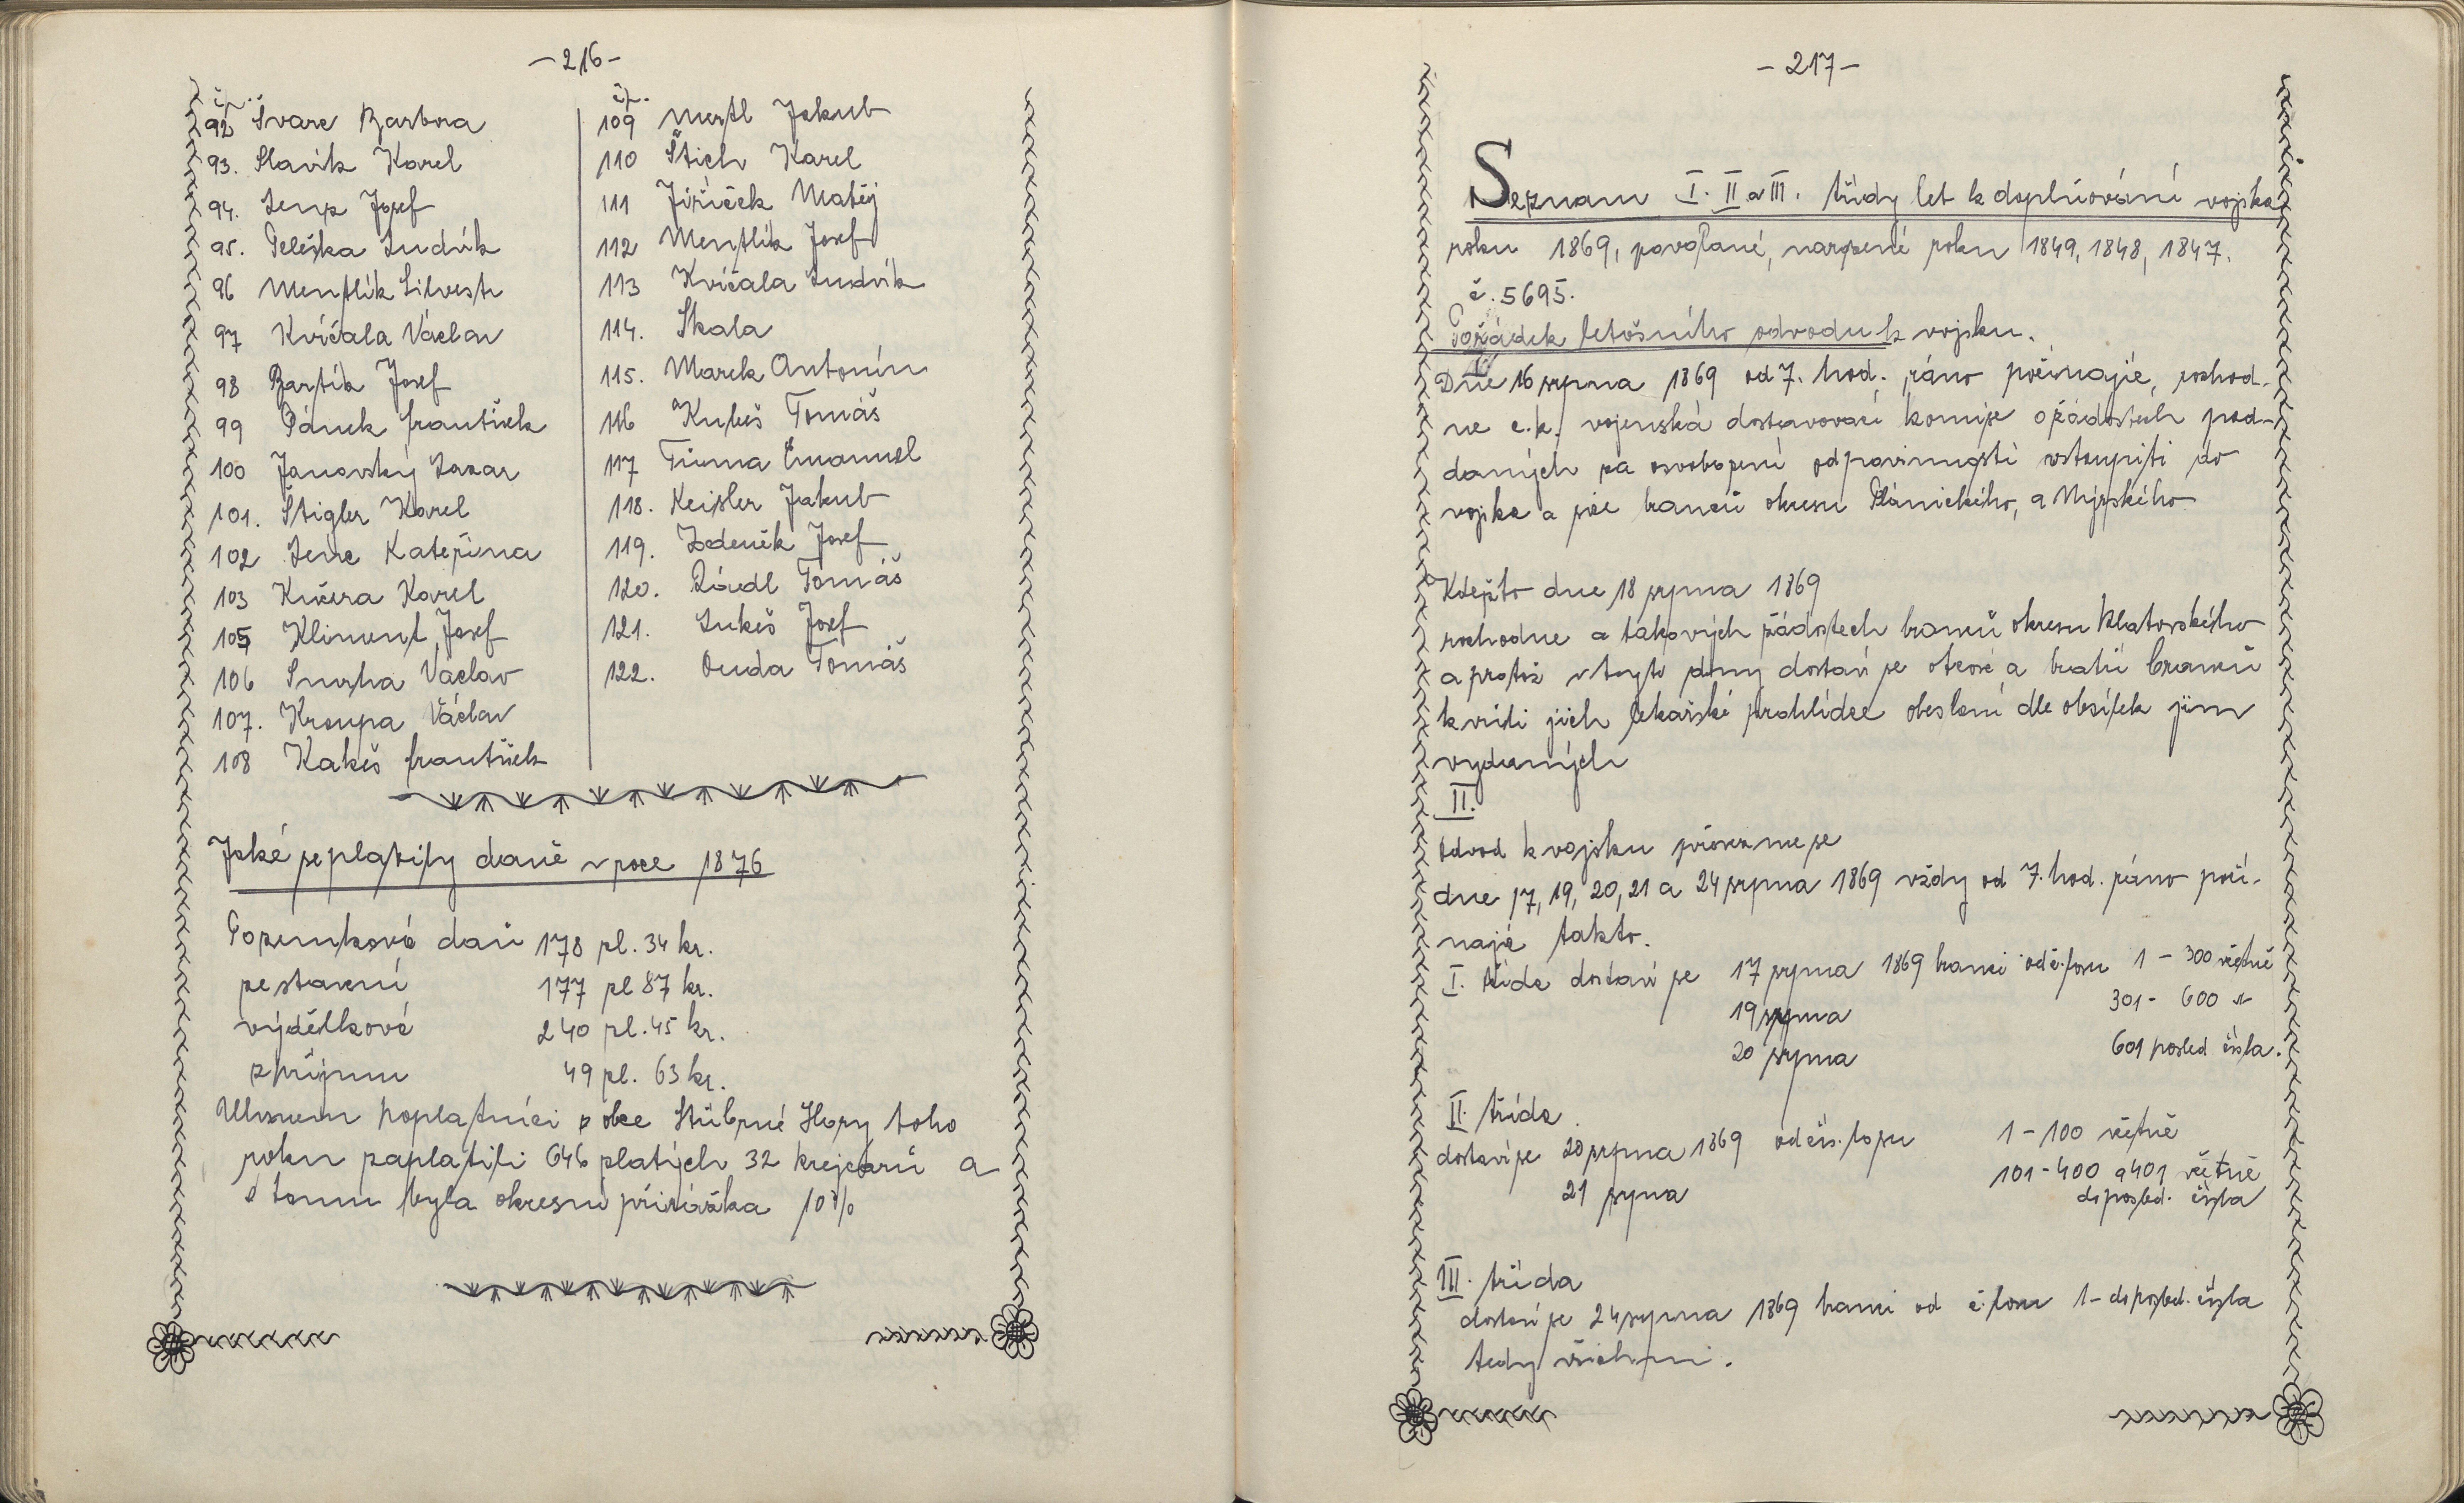 -216-
čp.
92 Švarc Barbora
93. Slavík Karel
94. Lenz Josef
95. Peleška Ludvík
96 Mentlík Silvestr
97 Kvíčala Václav
98 Bartík Josef
99 Pánek František
100 Janovský Lazar
101. Štigler Karel
102 Lenc Kateřina
103 Kučera Karel
105 Kliment Josef
106 Smrha Václav
107. Kroupa Václav
108 Kakeš František
čp.
109 Mertl Jakub
110 Štich Karel
111 Jiříček Matěj
112 Mentlík Josef
113 Kvíčala Ludvík
114. Skala
115. Marek Antonín
116 Kubeš Tomáš
117 Tůma Emanuel
118. Keisler Jakub
119. Zdeněk Josef
120. Rádl Tomáš
121. Lukeš Josef
122. Duda Tomáš
Jaké se platily daně v roce 1876
Pozemková daň 178 zl. 34 kr.
ze stavení 177 zl 87 kr.
výdělková 240 zl. 45 kr.
z příjmu 49 zl. 63 kr.
Úhrnem poplatníci z obce Stříbrné Hory toho
roku zaplatili 646 zlatých 32 krejcarů a
k tomu byla okresní přirážka 10%
-217-
Seznam I. II a III. třídy let k doplňování vojska
roku 1869, povolané, narozené roku 1849, 1848, 1847.
č. 5695.
Pořádek letošního odvodu k vojsku.
Dne 16 srpna 1869 od 7. hod. ráno počínajíc, rozhod-
ne c.k. vojenská dostavovací komise o žádostech pod-
daných za osvobození od povinnosti vstoupiti do
vojska a sice branců okresu Plánického, a Nýrského
Kdežto dne 18 srpna 1869
rozhodne a takových žádostech branců okresu Klatovského
a protož v tyto dny dostaví se otcové a bratři branců
k vůli jich lekařské prohlídce obeslaní dle obsílek jim
vydaných
II.
Odvod k vojsku předsezme se
dne 17, 19, 20, 21 a 24 srpna 1869 vždy od 7. hod. ráno počí-
najíc takto.
I. třída dostaví se 17 srpna 1869 branci od č. losu 1 - 300 včetně
19 srpna 301 - 600 "
20 srpna 601 posled čísla.
II. třída
dostaví se 20 srpna 1869 od čís. losu 1 - 100 včetně
21 srpna 101 - 400 a 401 včetně
do posled. čísla
III. třída
dostaví se 24 srpna 1869 branci od č. losu 1 - do posled. čísla
tedy všichni.